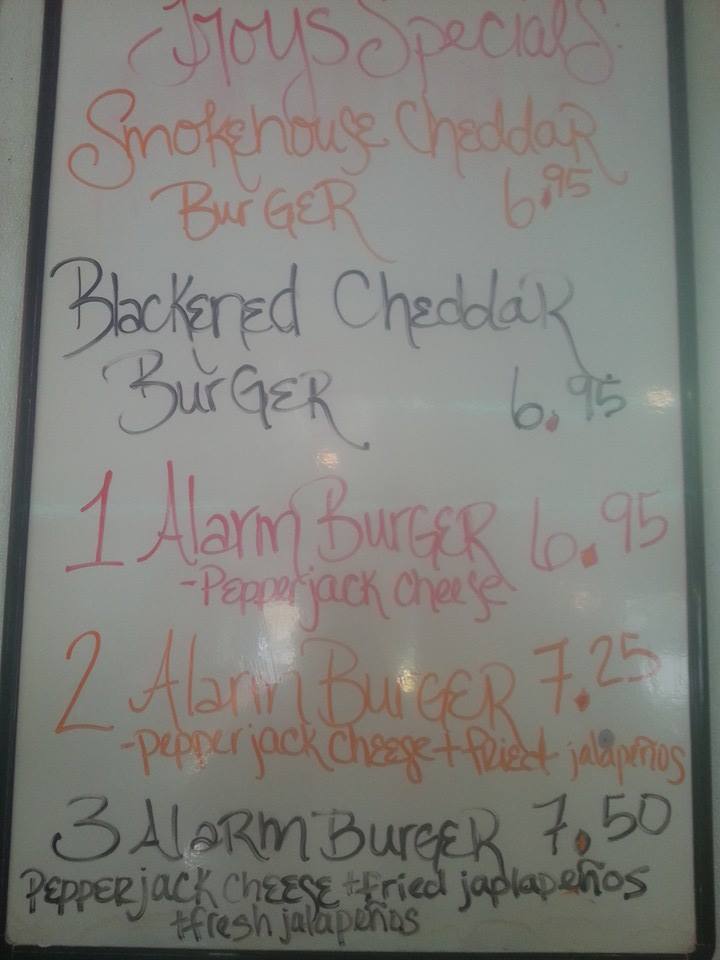 Troys Specials:
Smokehouse Cheddar
Burger 6.95
Blackened Cheddar
Burger 6.95
1 Alarm Burger 6.95
-Pepperjack cheese
2 Alarm Burger 7.25
-pepperjack cheese + fried jalapeños
3 Alarm Burger 7.50
Pepperjack cheese + fried japlapeños
+ fresh jalapeños